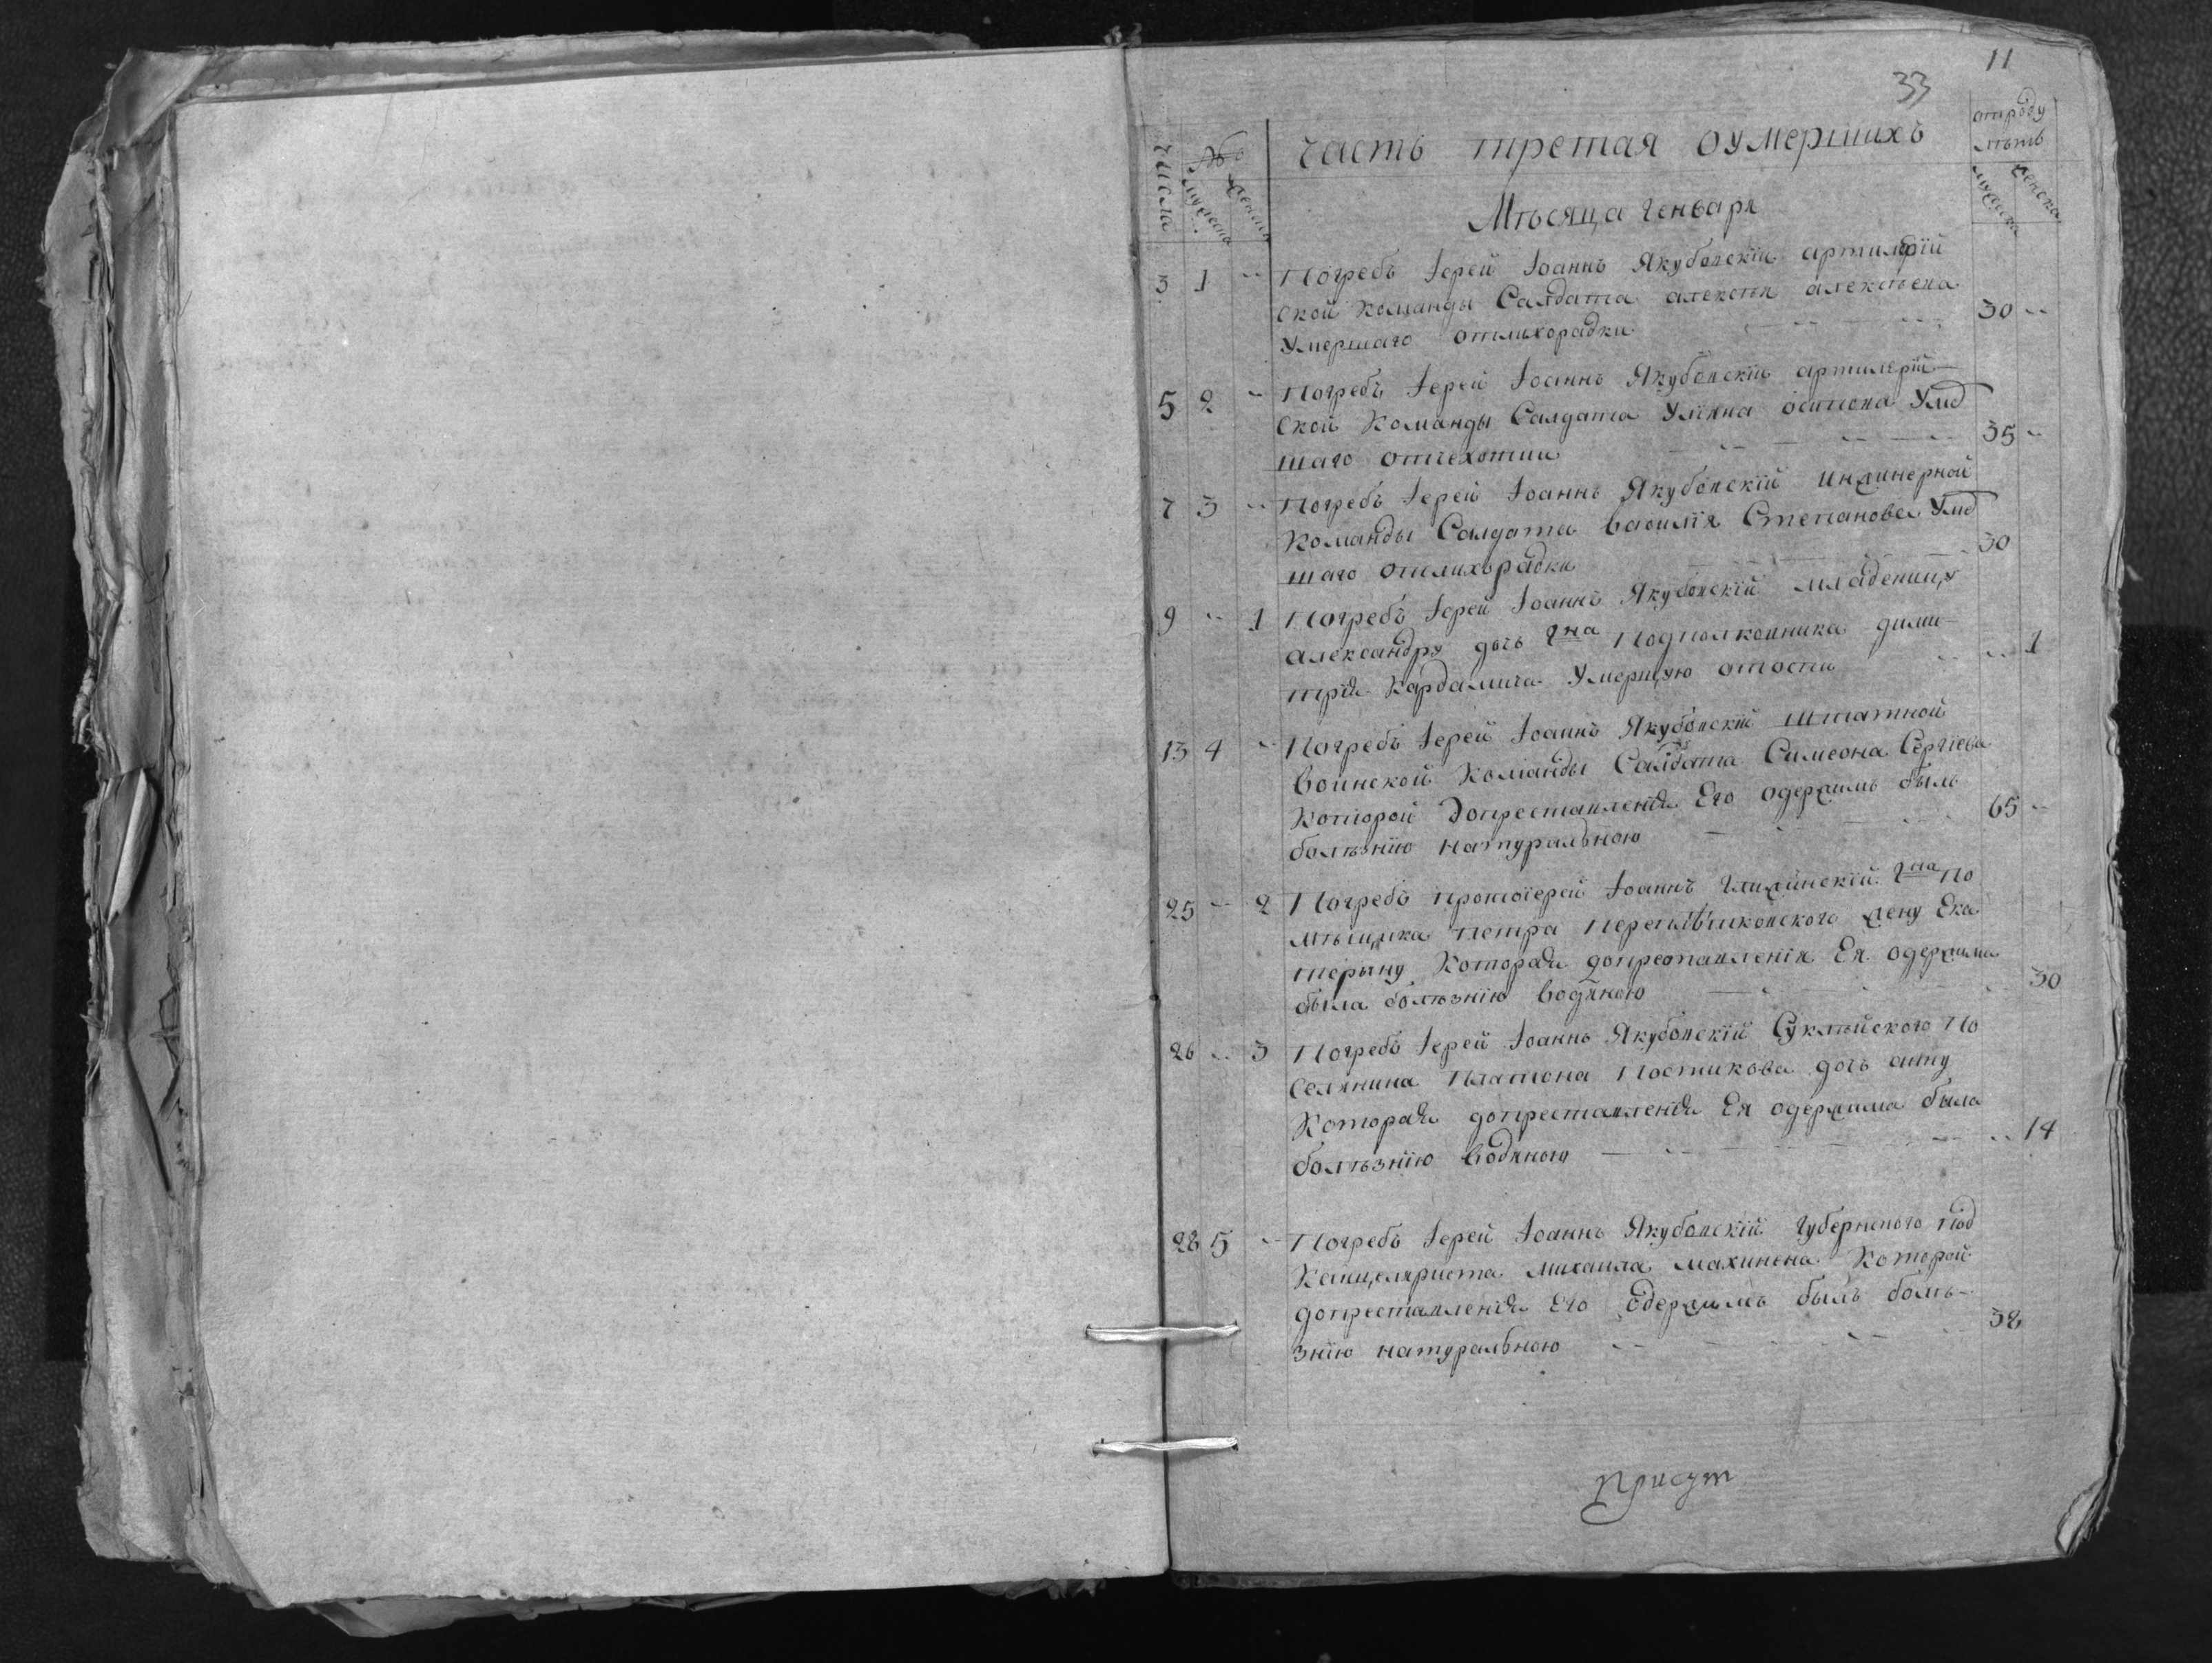 11
33
числа
№
мужеска
женска
часть третая оумершихъ
от роду
лѣтъ
мужеска
женска
Мѣсяца Генваря
3 1 Погребъ Іерей Іоаннъ Якубовскій артилерій
ской команды Салдата алексѣя алексѣева
умершаго отлихорадки 30
5 2 Погребъ Іерей Іоаннъ Якубовскій артилерій
ской Команды Салдата осипова Умер
шаго отчехотии 35
7 3 Погребъ Іерей Іоаннъ Якубовскій инжинерной
Команды Салдата василія Степанова Умер
шаго отлихорадки 30
9 1 Погребъ Іерей Іоаннъ Якубовскій младеницу
александру дочь Гна Подполковника дими
трія Кардамича Умершую отоспи 1
13 4 Погребъ Іерей Іоаннъ Якубовскій штатной
воинской Команды Салдата Симеона Сергіева
Которой допреставленія Его одержимъ былъ
болѣзнію натуральною 65
25 2 Погребъ протоіерей Іоаннъ Гна по
мѣщика петра жену Ека
терыну Которая допреставленія Ея одержима
была болѣзнію водяною 30
26 3 Погребъ Іерей Іоаннъ Якубовскій Суклѣйского По
селянина Платона Постикова дочь анну
Которая допреставленія Ея одержима была
болѣзнію водяною 14
28 5 Погребъ Іерей Іоаннъ Якубовскій губернского под
Канцеляриста михаила махинена Которой
допреставленія Его одержимъ былъ болѣ
знію натуральною 38
Присут